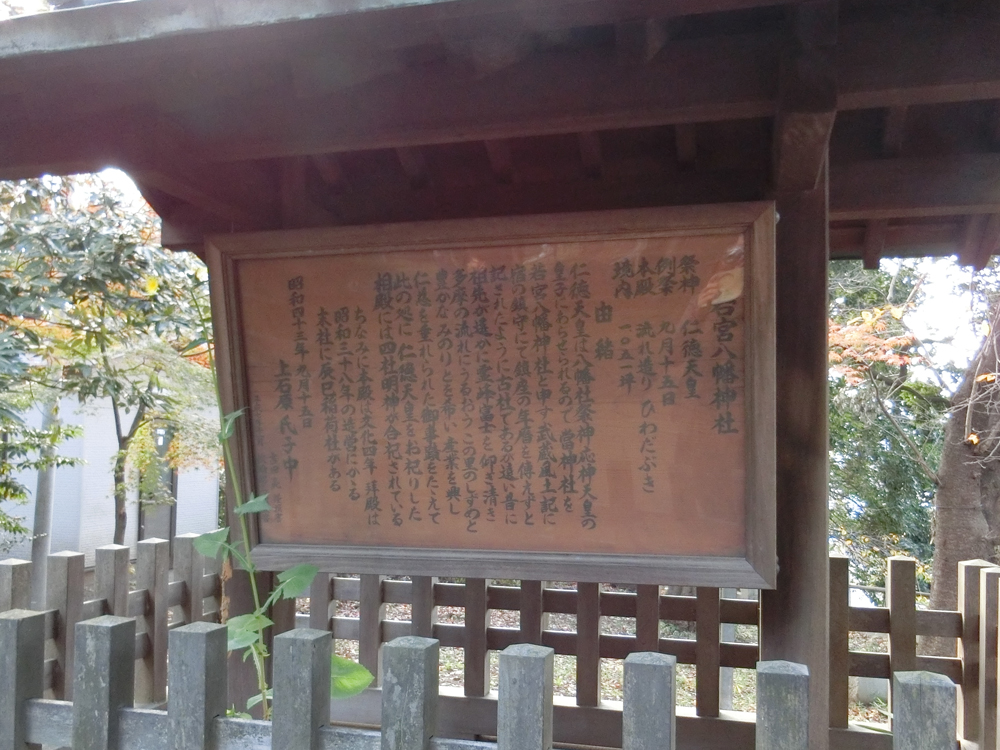 若宮八幡神社
祭神 仁徳天皇
例祭 九月十五日
本殿 流れ造り ひわだぶき
境内 一〇五一坪
由緒
仁徳天皇は八幡社祭神応神天皇の
皇子にわらせられるので 当神社を
若宮八幡神社と申す 武蔵風土記に
宿の鎮守にて鎮座の年暦を傳えずと
記されたように古社であるが遠い昔に
祖先が遥かに霊峰富士を仰ぎ清き
多摩の流れにうるおうこの里のしずめと
豊かなみのりとを希い 産業を興し
仁慈を垂れられた御事蹟をたゝえて
此の処に 仁徳天皇をお祀りした
相殿には四社明神が合祀されている
ちなみに本殿は文化四年 拝殿は
昭和三十八年の造営にかゝる
末社に辰口稲荷社がある
昭和四十五年九月十五日
上石原 氏子中